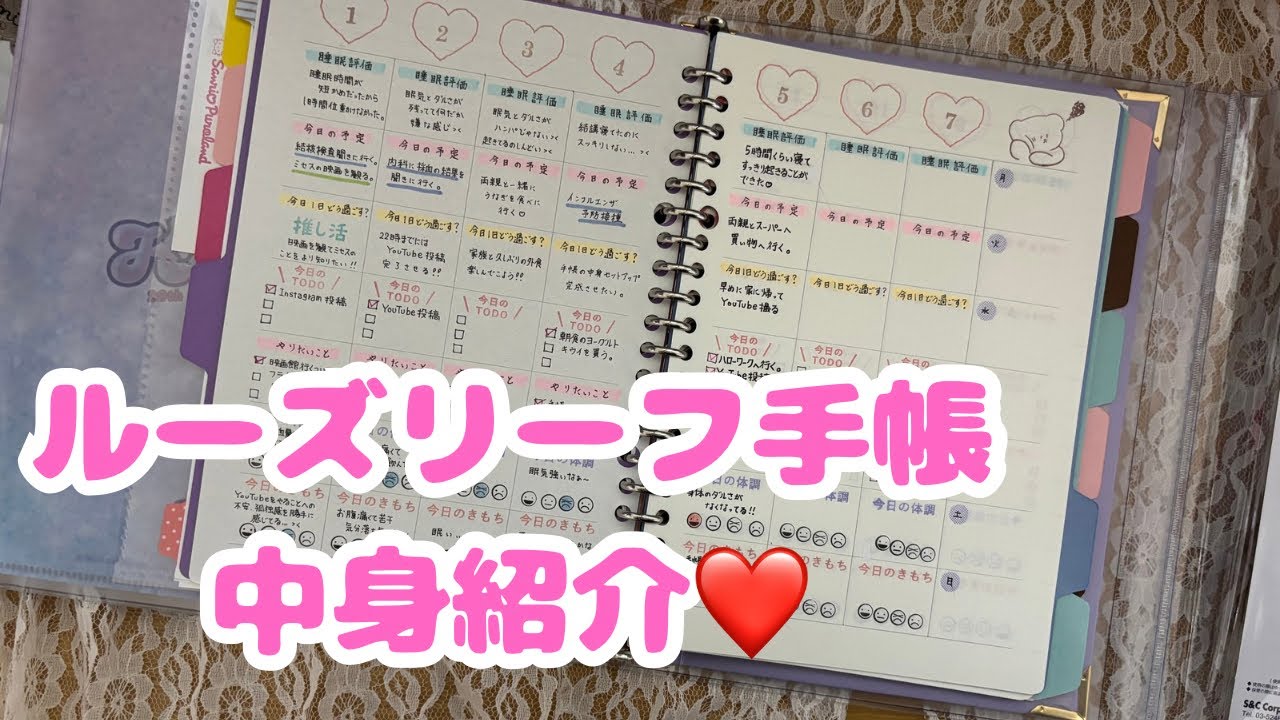 Sanrio Puroland
20th
1
睡眠評価
睡眠時間が
短かめだったから
1時間位動けなかった。
今日の予定
結築検査聞きに行く。
ミセスの映画を観る。
今日1日どう過ごす?
推し活
映画を観てミセスの
ことをより知りたい!!
今日のTODO
Instagram投稿
やりたいこと
YouTubeをやることへの
不安、孤独感を勝手に
感じてる…っっ
2
睡眠評価
眠気とダルさが
残ってて何だか
嫌な感じっっ
今日の予定
内科に採血の結果を
聞きに行く。
今日1日どう過ごす?
22時までには
YouTube投稿
完了させる!!
今日の
TODO
YouTube投稿
やりたいこと
今日のきもち
お腹痛くて苦手
3
睡眠評価
眠気とダルさが
ハンパじゃないっっ
起きてるのしんどいっっ
今日の予定
両親と一緒に
うなぎを食べに
行く♡
今日1日どう過ごす?
家族と久しぶりの外食
楽しんでこよう!!
今日の
TODO
今日のきもち
4
睡眠評価
結構寝てたのに
スッキリしない…っっ
今日の予定
インフルエンザ
予防接種
今日1日どう過ごす?
手帳の中身セットアップ
完成させたい。
今日の
TODO
朝食のヨーグルト
キウイを買う。
やりたいこと
の体調
眠気強いなぁ〜
今日のきもち
5
睡眠評価
5時間くらい寝て
すっきり起きることが
できた♡
今日の予定
両親とスーパーへ
買い物へ行く。
今日1日どう過ごす?
早めに家に帰って
YouTube撮る
今日の
TODO
ハローワークへ行く。
の体調
身体のダルさが
なくなってる!!
6
睡眠評価
今日の予定
今日1日どう過ごす?
今日の
TODO
日の体調
今日のきもち
7
睡眠評価
今日の予定
今日1日どう過ごす?
今日の
TODO
今日の体調
今日のきもち
月
火
水
土
日
ルーズリーフ手帳
中身紹介❤️
S&C Corp